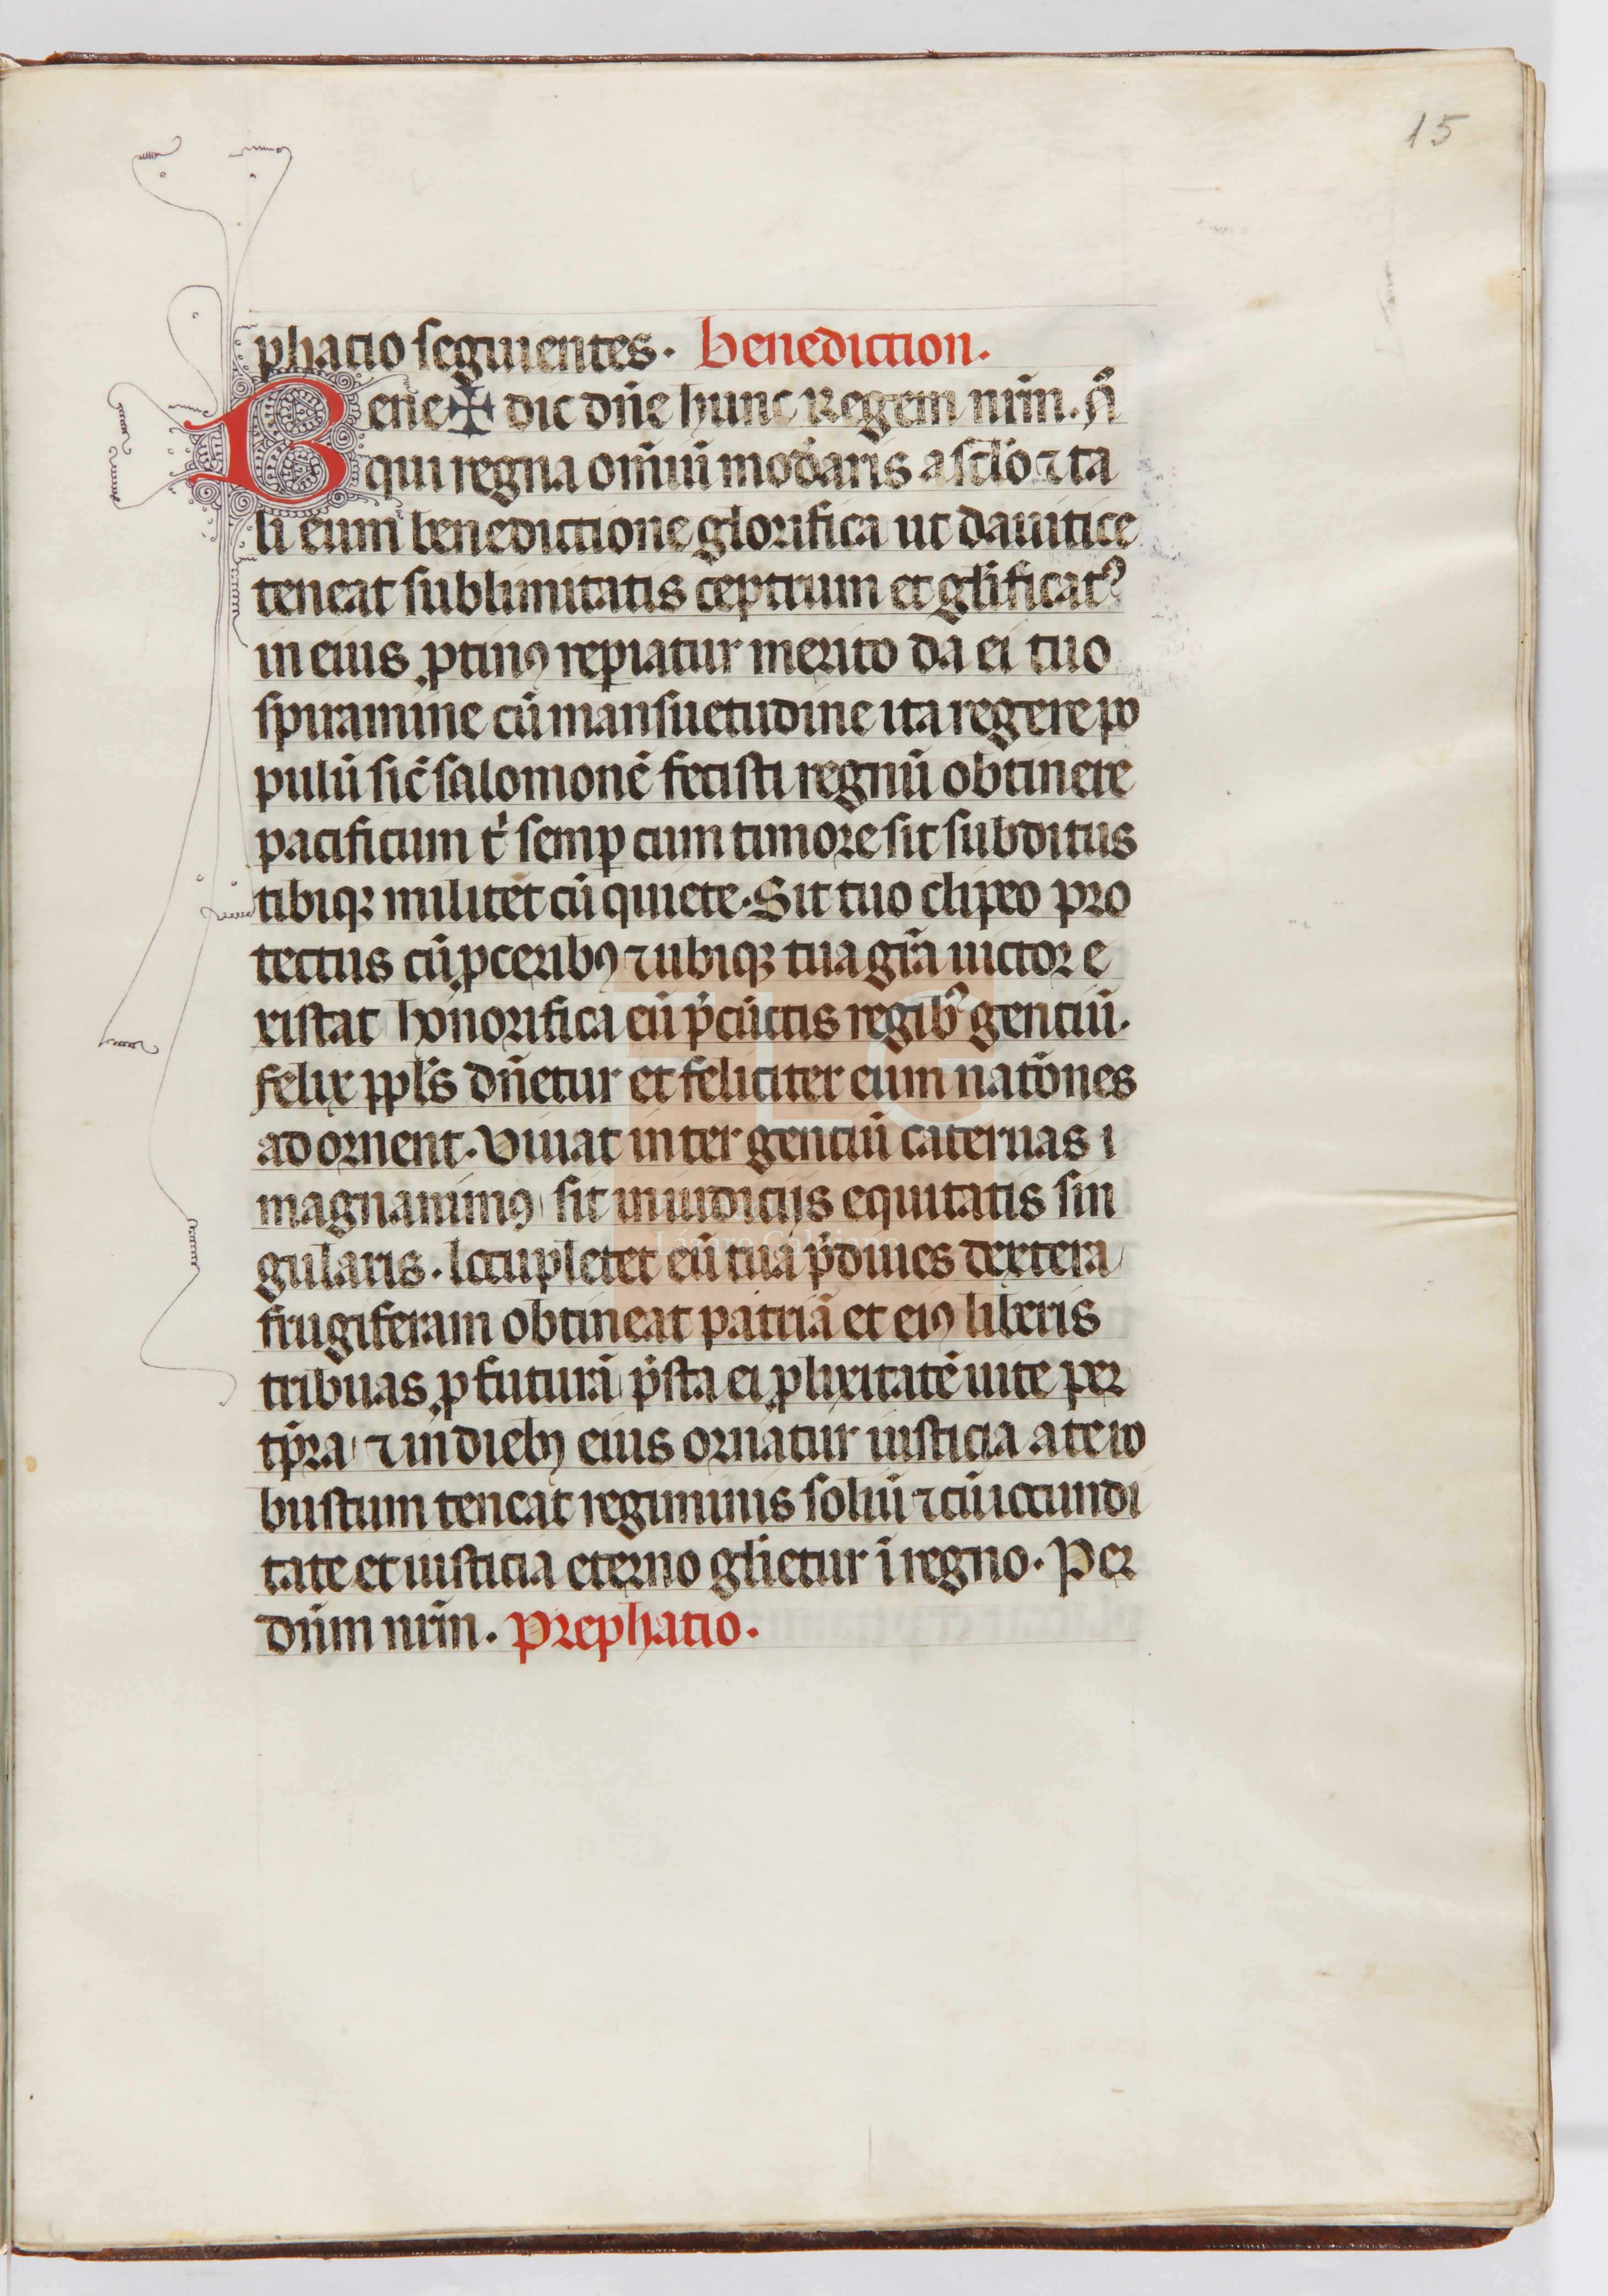 15
phatio seguientes. benediction.
Bene✠dic dn̄e hunc Regem nr̄m. N̄
qui regna om̄iū mod̓aris a sc̄lo ⁊ ta
li eum benedictione glorifica ut dauitice
teneat sublimitatis ceptrum et glīficatꝰ
in eius ꝓtinꝰ reꝑiatur merito da ei tuo
spiramine cū mansuetudine ita regere po
pulū sic̄ salomonē fecisti regnū obtinere
pacificum t̓ semꝑ cum timore sit subditus
tibiqꝫ militet cū quiete. Sit tuo clipeo pro
tectus cū ꝓceribꝰ ⁊ ubiqꝫ tua gr̄a uictor e
xistat honorifica eū p̄ cūctis regibꝰ gentiū.
felix ppl̄s dn̄etur et feliciter eum natōnes
adornent. Viuat inter gentiū cateruas i
magnanimꝰ sit in iudicijs equitatis sin
gularis. locupletet eū tua p̄diues dextera
frugiferam obtineat patriā et eiꝰ liberis
tribuas ꝓfuturā p̄sta ei ꝓlixitatē uite per
tp̄ra ⁊ in diebꝰ eius oriatur iusticia a te ro
bustum teneat regiminis soliū ⁊ cū iocundi
tate et iusticia eterno glīetur ī regno. Per
dn̄m nr̄m. Prephatio.
Lázaro Galdiano